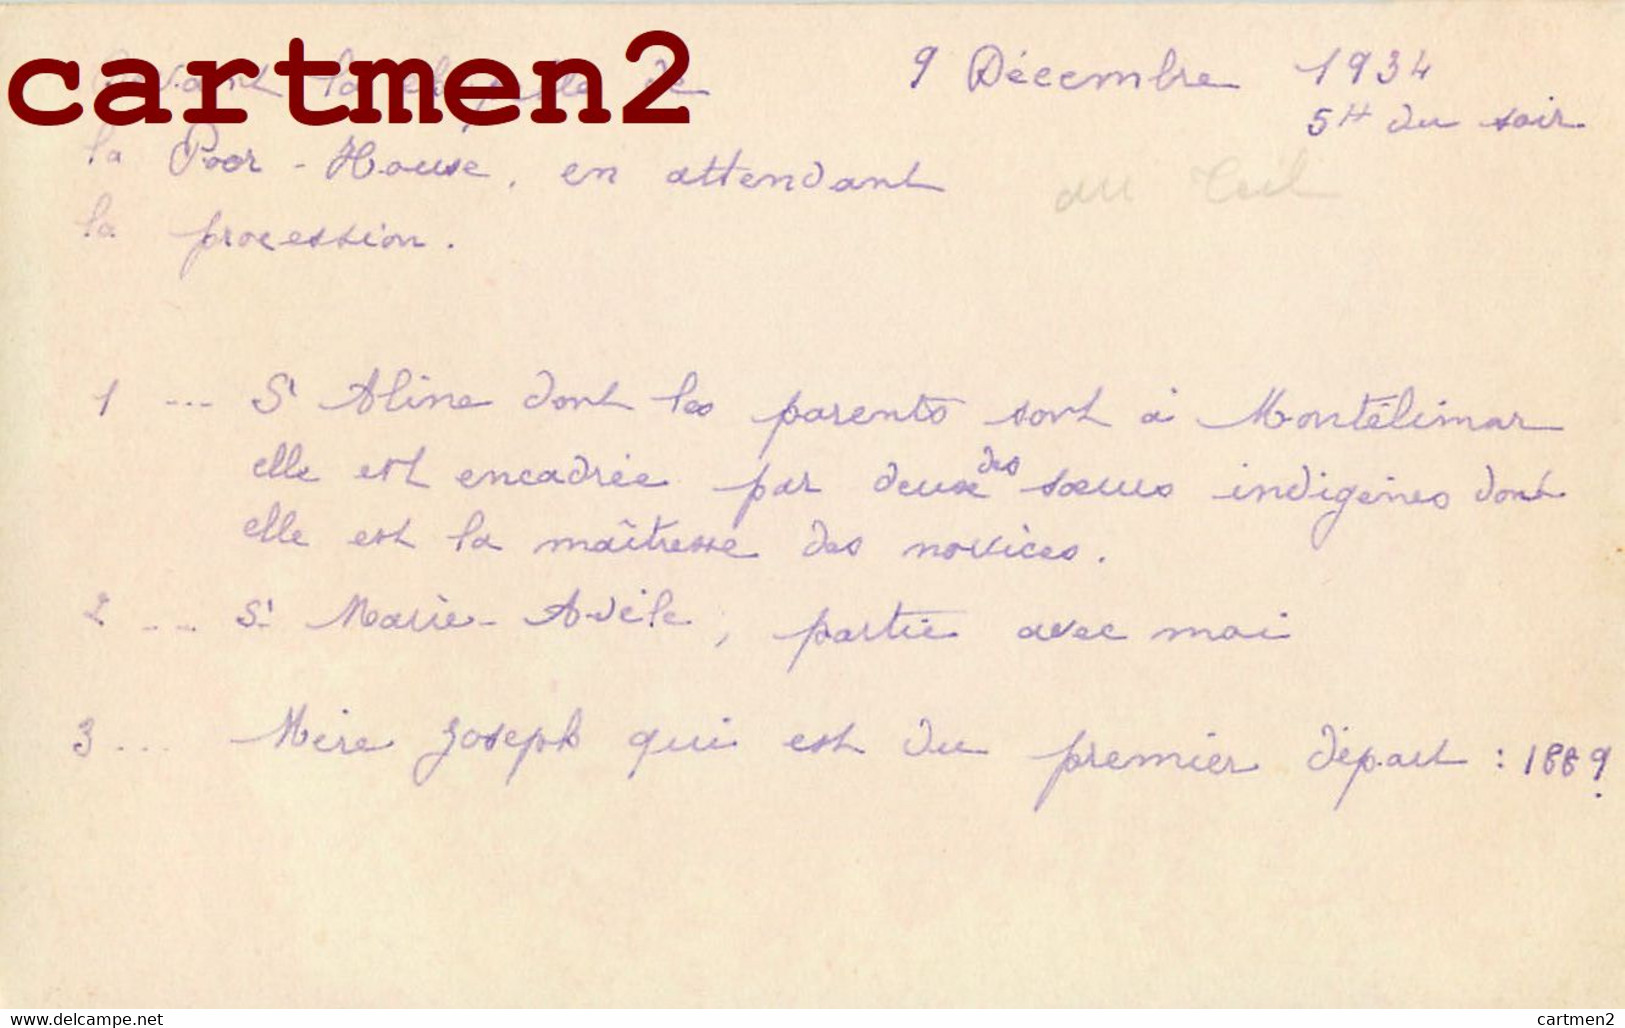 cartmen2
Devant la chapelle de
9 Décembre 1934
5H du soir
la Poor-House, en attendant
au
la procession.
1 --- Sr Aline dont les parents sont à Montélimar
elle est encadrée par deux des sœurs indigènes dont
elle est la maîtresse des novices.
2 --- Sr Marie-Adèle, partie avec moi
3 --- Mère Joseph qui est du premier départ : 1889.
www.delcampe.net
cartmen2